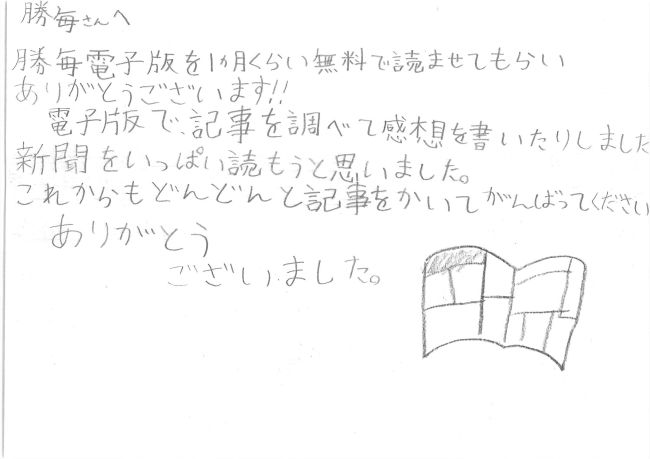 勝毎さんへ
勝毎電子版を1カ月くらい無料で読ませてもらい
ありがとうございます!!
電子版で、記事を調べて感想を書いたりしました
新聞をいっぱい読もうと思いました。
これからもどんどんと記事をかいてがんばってください
ありがとう
ございました。